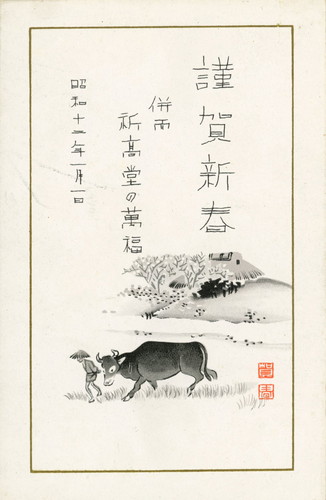 謹賀新春
併而
祈高堂の萬福
昭和十二年一月一日